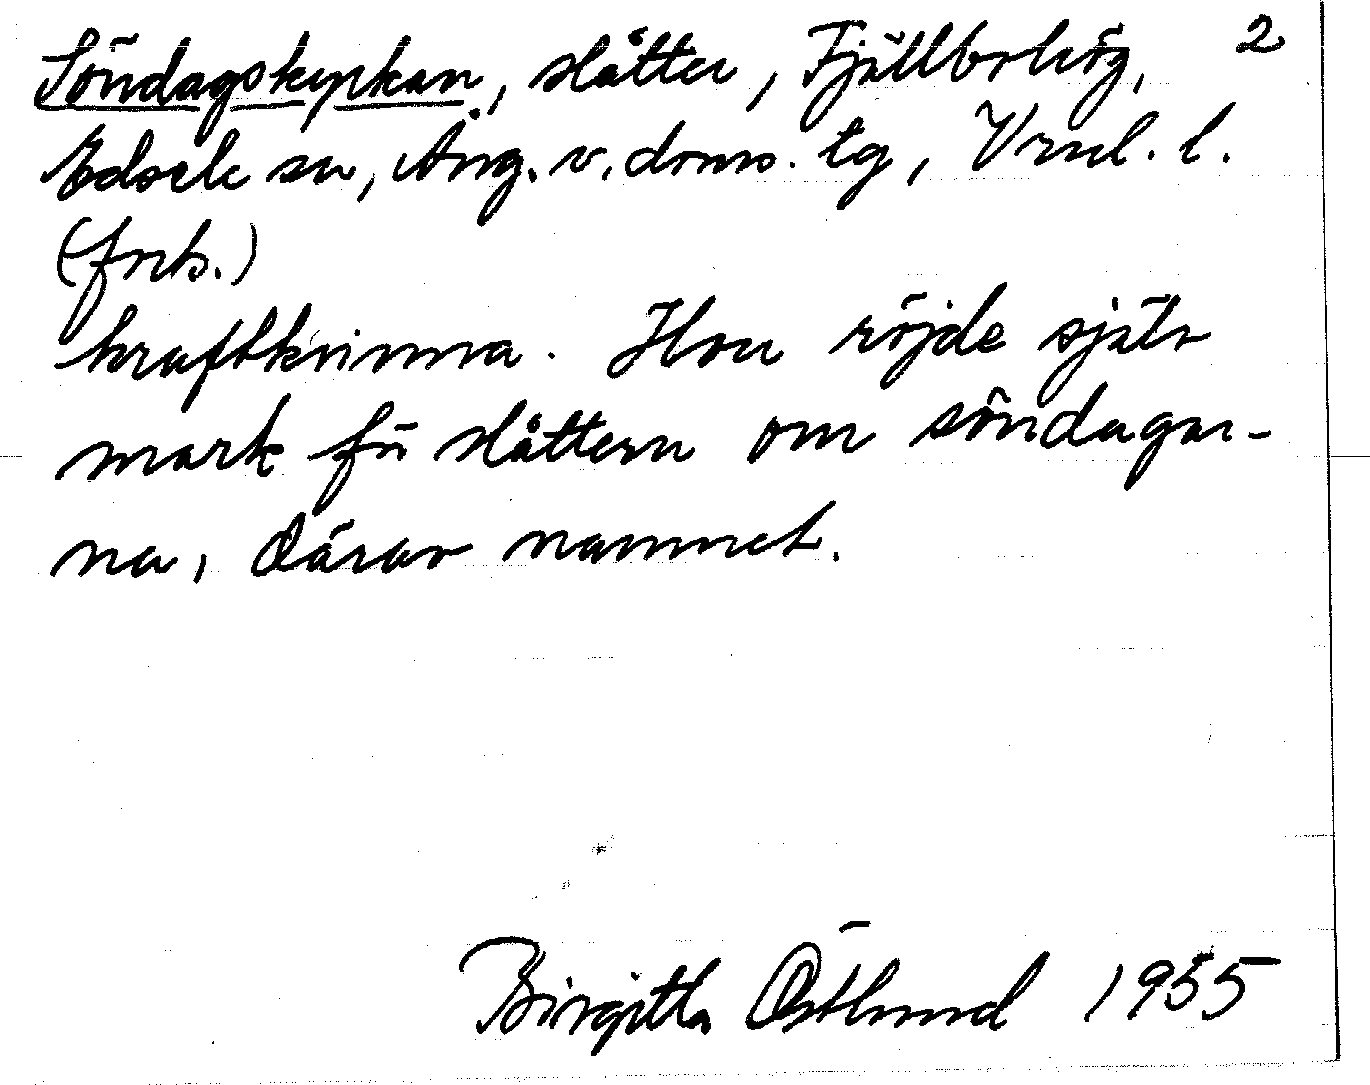 Söndagskyrkan, slåtter, Fjällbohög, 2
Edsele sn, Ång. v. doms. tg, Vrnl. l.
(forts.)
kraftkvinna. Hon röjde själv
mark för slåttern om söndagar-
na, därav namnet.
Birgitta Östlund 1955